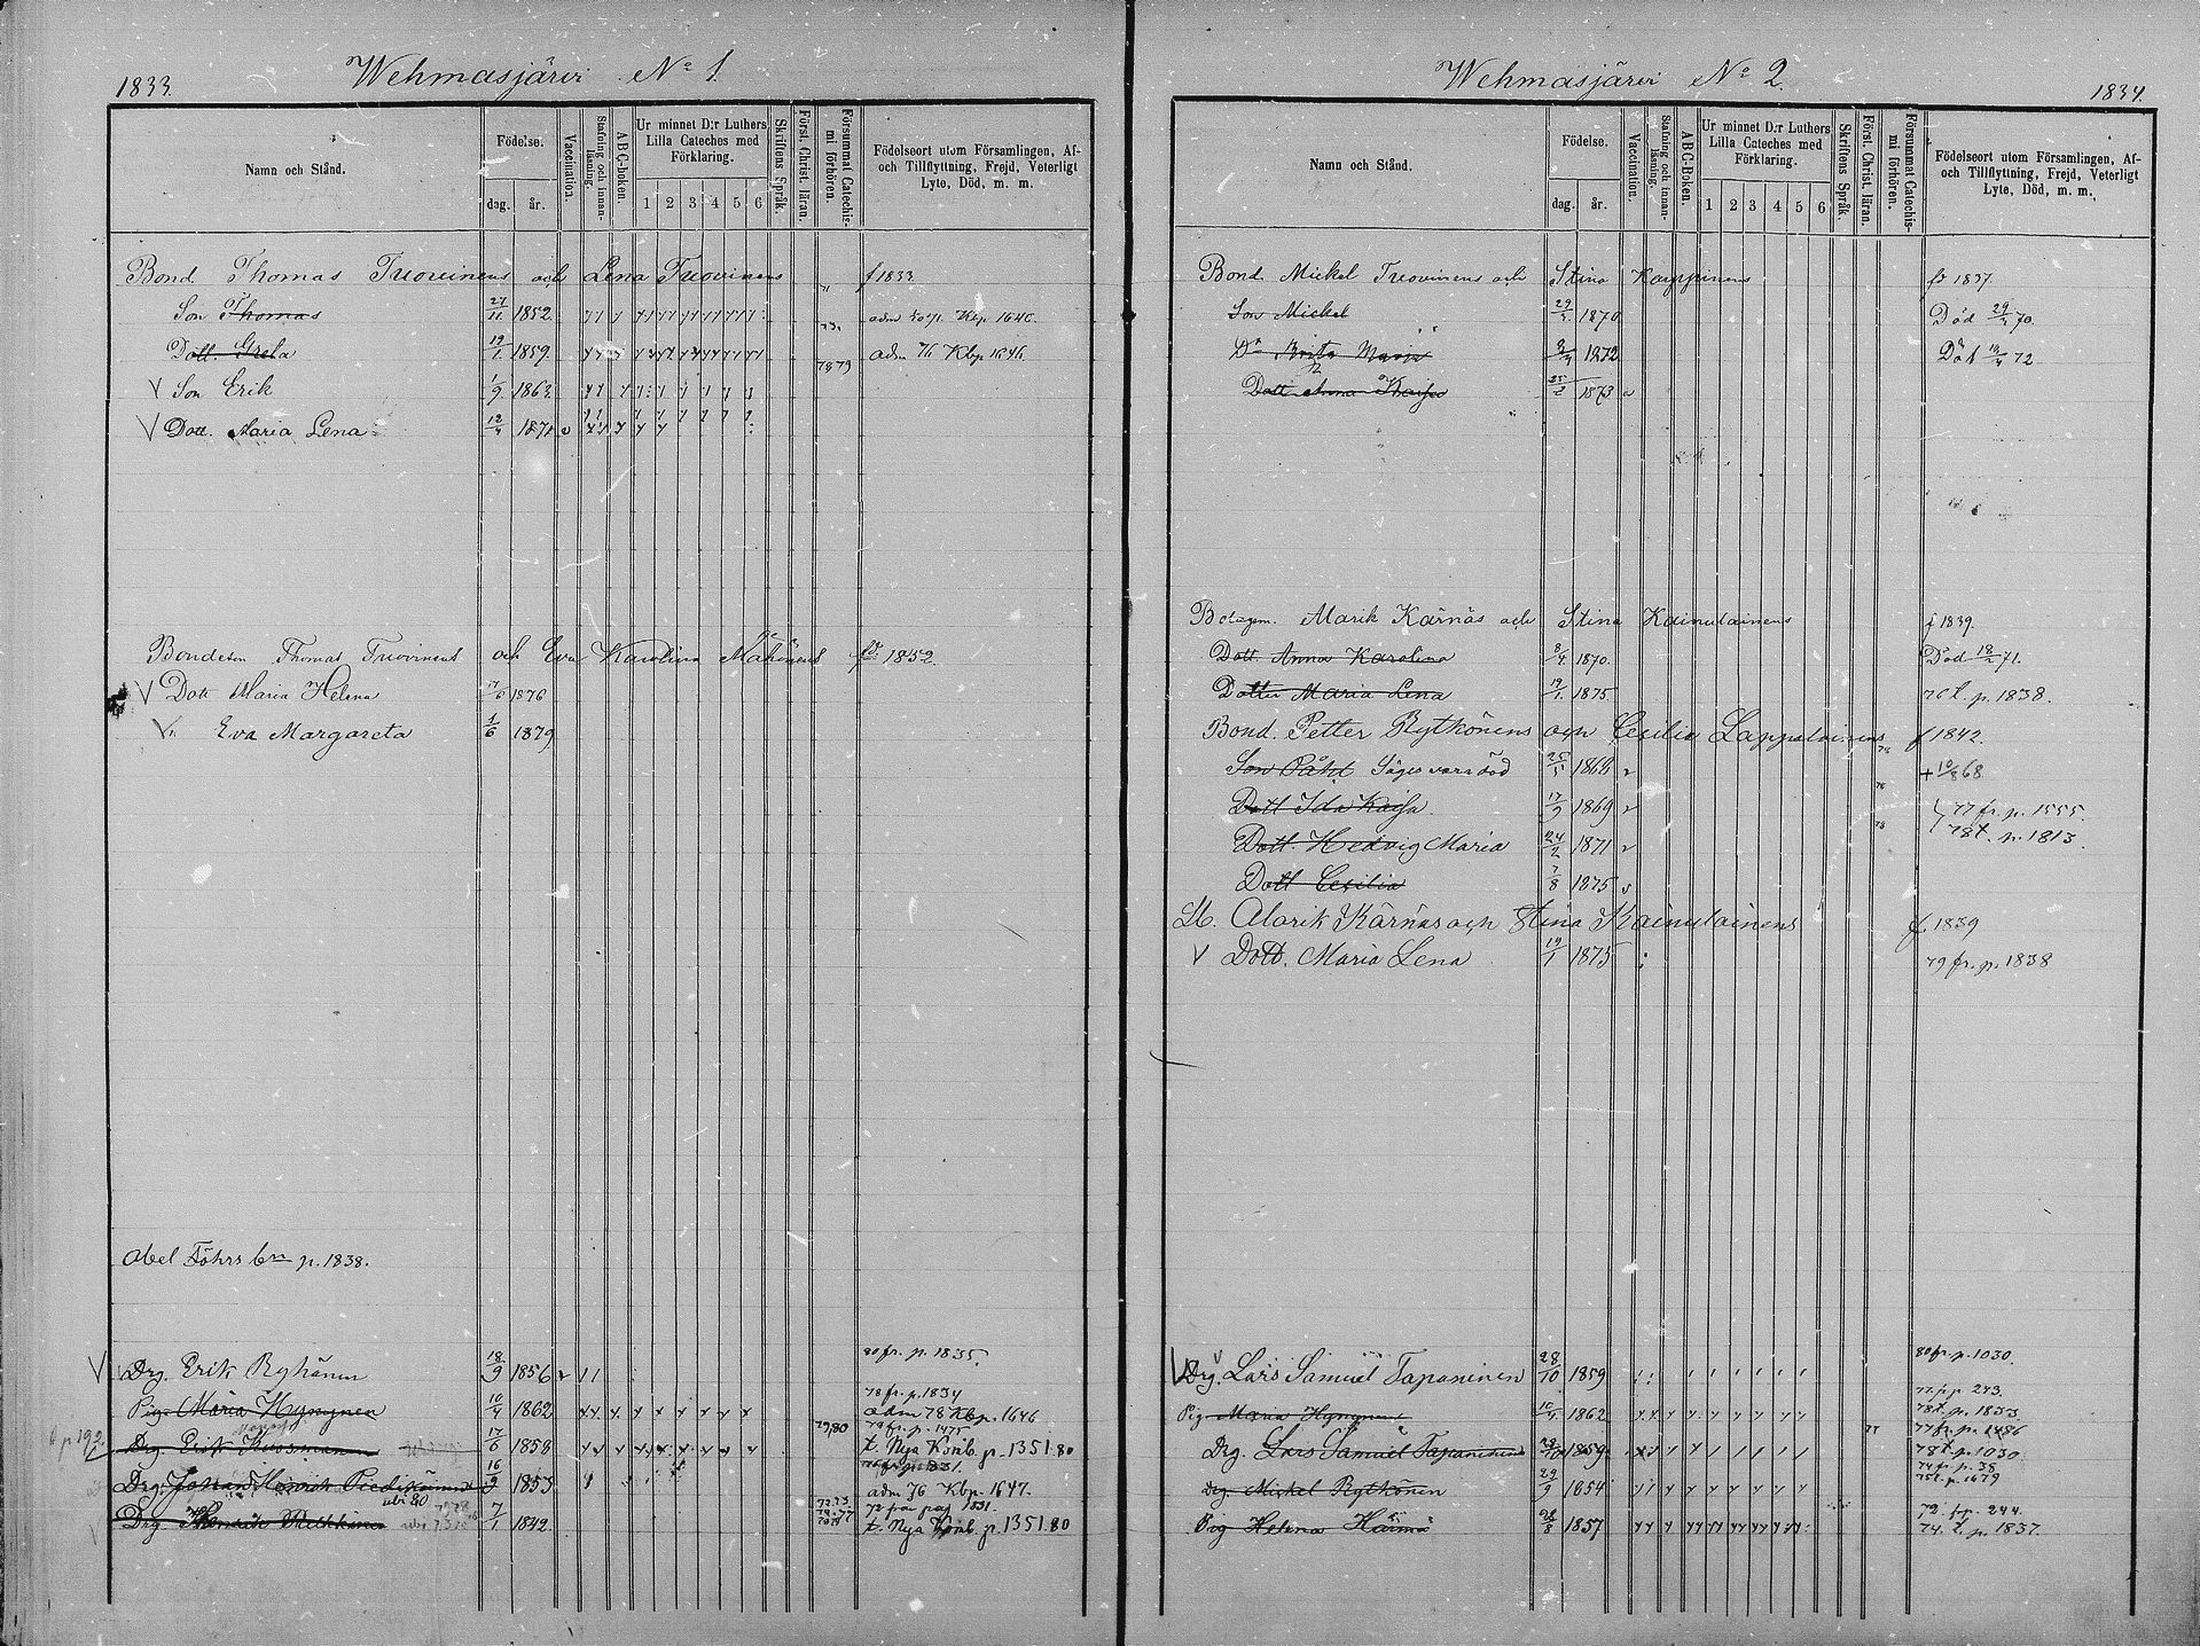 1833.
Wehmasjärvi No 1.
Namn och Stånd.
Födelse.
dag.
år.
Vaccination.
Stafning och innan-läsning.
ABC-boken.
Ur minnet D:r Luthers
Lilla Cateches med
Förklaring.
1 2 3 4 5 6
Skriftens Språk.
Först. Christ. läran.
Försummat Catechis-
mi förhören.
Födelseort utom Församlingen, Af-
och Tillflyttning, Frejd, Veterligt
Lyte, Död, m. m.
Bond. Thomas Tuovinens och Lena Tuovinens f 1833
Son Thomas 27/11 1852 Kbp. 1646.
Dott. Greta 19/1 1859 adm 76 Kbp 1646.
78 79
V Son Erik 1/9 1863
V Dott. Maria Lena 12/4 1871 v
Bondeson Thomas Tuovinens och Eva Karolina 1852.
V Dott Maria Helena 17/6 1876
V Eva Margareta 1/6 1879
Abel Föhrs p. 1838.
80 fr. p. 1835.
V Drg. Erik Ryhänen 18/9 1856 v
78 fr. p. 1834
Pig. Maria Hyngnen 10/4 1862 adm 78 Kbp. 1646
79,80 79 fr. p. 1475
Drg. Erik Kuosmanen 17/6 1858 t. Nya Komb. p. 1351.80
Drg. Johan Henrik 16/9 1853 adm. 76 Kbp. 1647.
72 från pag 1831.
Drg. 7/1 1842. t. Nya Komb. p. 1351.80
Wehmasjärvi No 2.
1834.
Namn och Stånd.
Födelse.
dag.
år.
Vaccination.
Stafning och innan-läsning.
ABC-Boken.
Ur minnet D:r Luthers
Lilla Cateches med
Förklaring.
1 2 3 4 5 6
Skriftens Språk.
Först. Christ. läran.
Försummat Catechis-
mi förhören.
Födelseort utom Församlingen, Af-
och Tillflyttning, Frejd, Veterligt
Lyte, Död, m. m.
Bond. Mickel Tuovinens och Stina Kauppinens 1837.
Son Mickel 1870 Död 70.
Do Brita Maria 1872 Död 72
Dott Anna Kaisa 1873 v
Marik Kärnäs och Stina Kainulainens f 1839.
Dott. Anna Karolina 8/4 1870. Död 18/2 71.
Dotter Maria Lena 19/1 1875 p. 1838.
Bond. Petter Rytkönens och Cecilia Lappalainens f 1842.
Son Påhl Säges vara död 25/5 1868 v + 10/8 68
Dott Ida Kaisa. 17/9 1869 v 77 fr. p. 1555.
78 t. p. 1813.
Dott. Hedvig Maria 24/2 1871 v
Dott Cecilia 7/8 1875 v
Alarik Kärnäs och Stina Kainulainens f. 1839
V Dott. Maria Lena 19/1 1875 79 fr. p. 1838
80 fr. p. 1030.
V Drg. Lars Samuel Tapaninen 28/10 1859
78 t. p. 1833
Pig Maria Hyngnen 10/4 1862
77 fr. p. 1486
Drg. Lars Samuel Tapaninen 28/10 1859 78 t. p. 1030
74 fr. p. 38
Drg. Mickel Rytkönen 29/9 1854 75 t. p. 1679
73. fr. 244.
Pig Helena 28/8 1857 74. t. p. 1837.